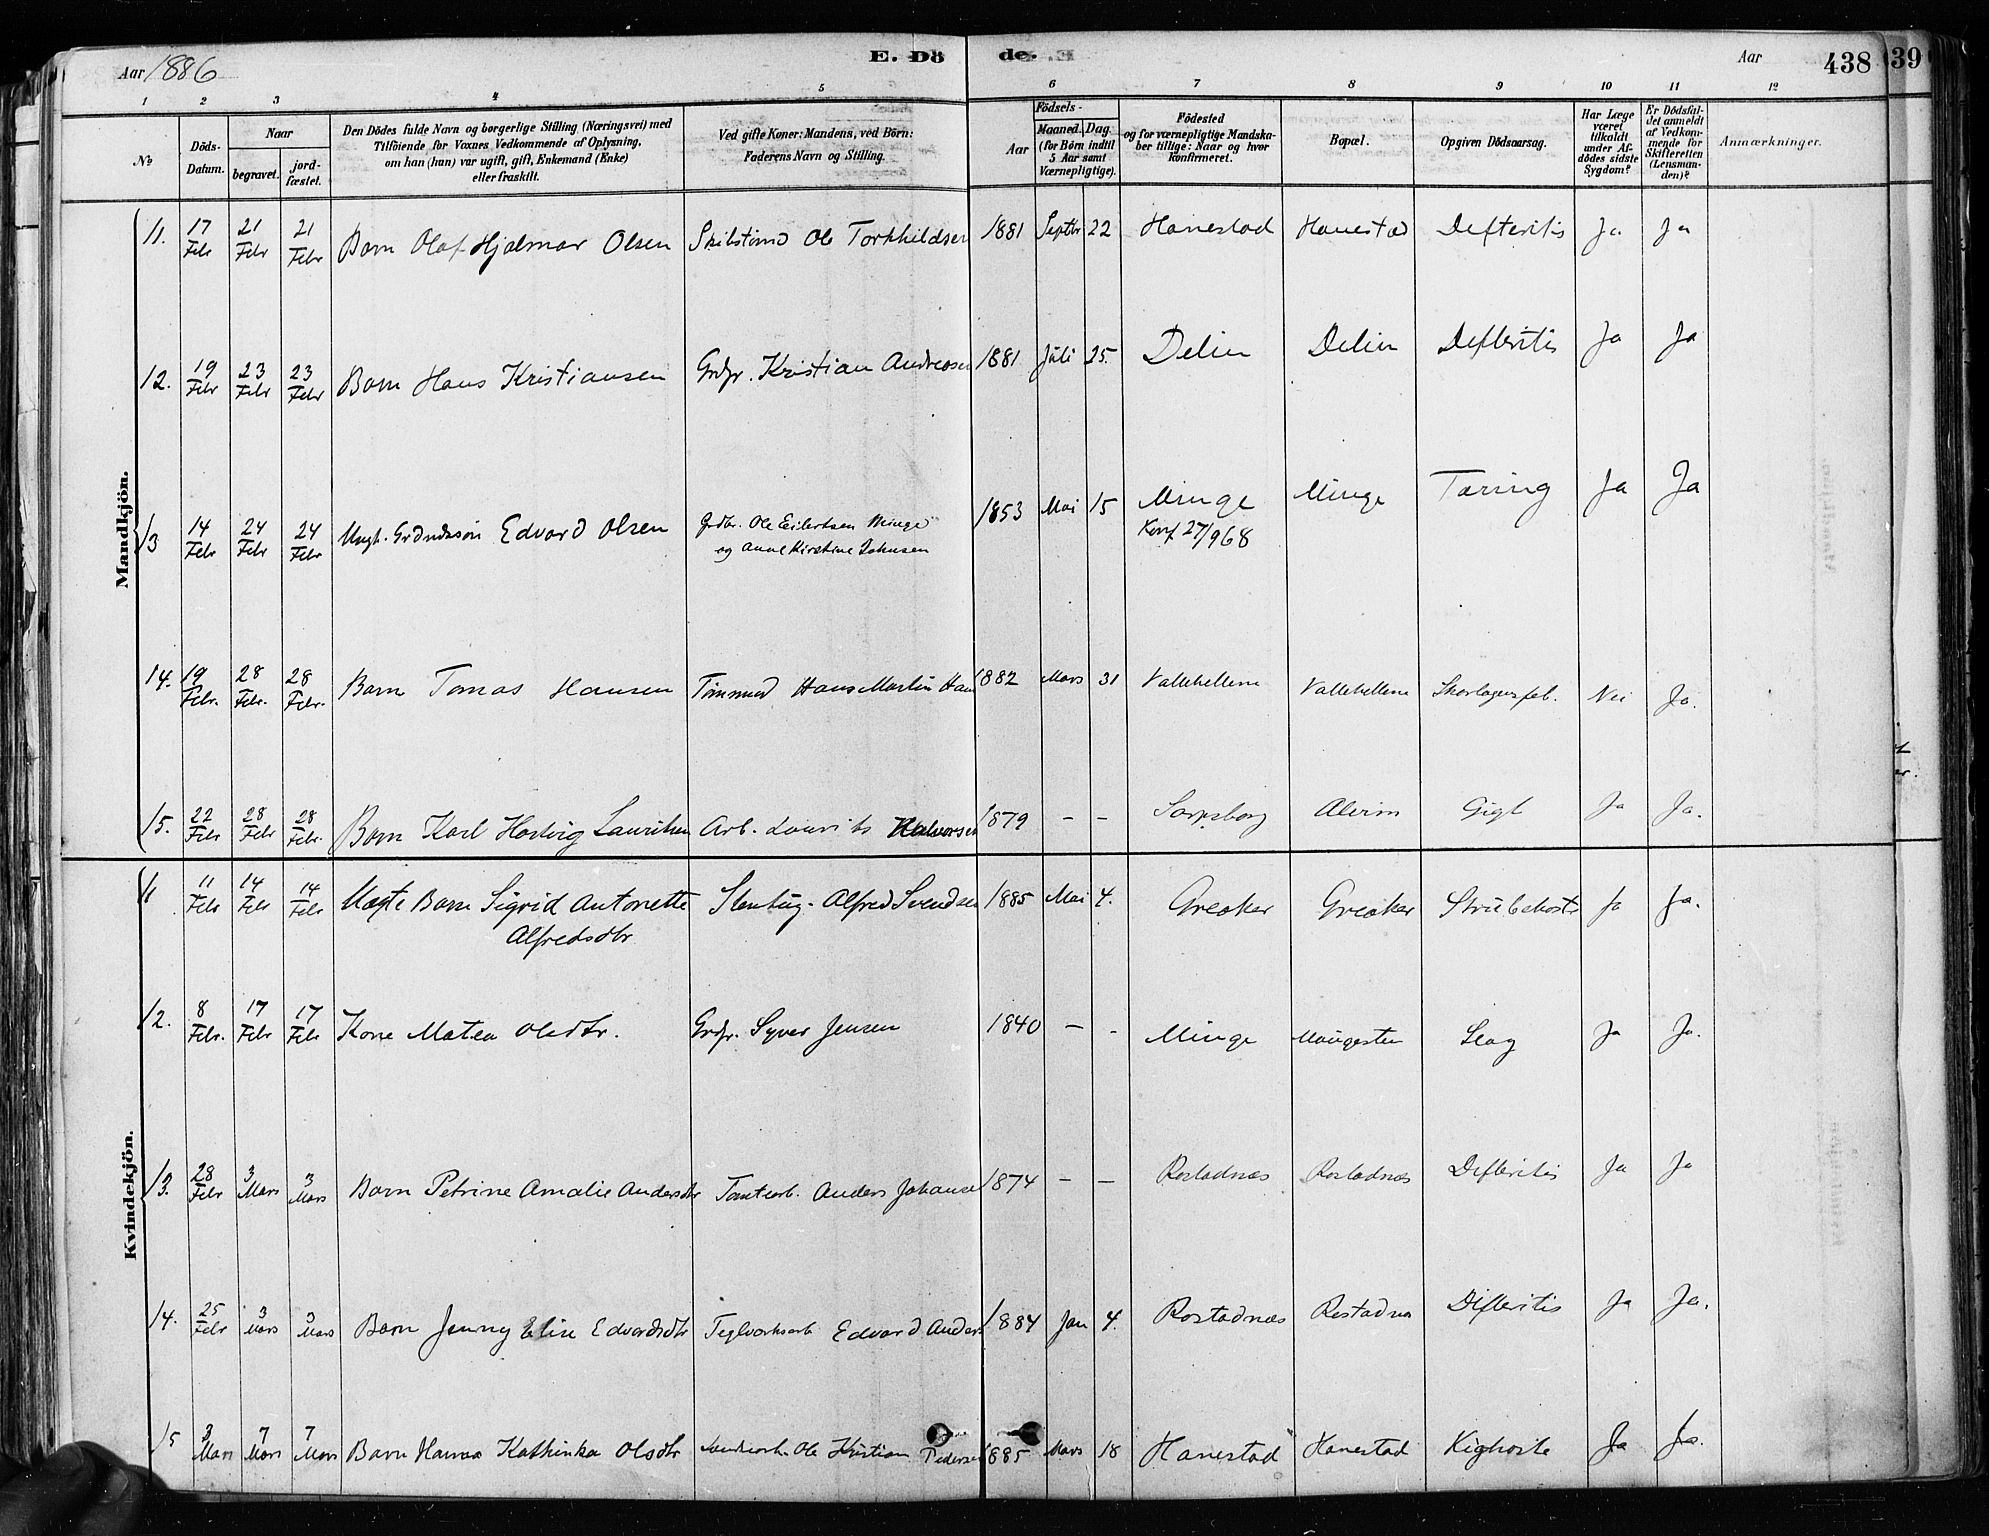 Aar 1886
E. Dö de.
Aar
438
39
1 2 3 4 5 6 7 8 9 10 11 12
No
Döds-Datum.
Naar
begravet.
jord-fæstet.
Den Dödes fulde Navn og borgerlige Stilling (Næringsvei) med
Tilföiende for Voxnes Vedkommende af Oplysning,
om han (hun) var ugift, gift, Enkemand (Enke)
eller fraskilt.
Ved gifte Koner: Mandens, ved Börn:
Faderens Navn og Stilling.
Födsels-
Aar
Maaned. Dag.
(for Börn indtil
5 Aar samt
Værnepligtige).
Födested
og for værnepligtige Mandska-
ber tillige: Naar og hvor
konfirmeret.
Bopæl.
Opgiven Dödsaarsag.
Har Læge
været
tilkaldt
under Af-
dödes sidste
Sygdom?
Er Dödsfal-
det anmeldt
af Vedkom-
mende for
Skifteretten
(Lensman-
den)?
Anmærkninger.
Mandkjön.
11. 17 Febr 21 Febr 21 Febr Barn Olaf Hjalmar Olsen Skibstømd Ole Torkhildsen 1881 Septbr 22 Hanestad Hanestad Defteritis Ja Ja
12. 19 Febr 23 Febr 23 Febr Barn Hans Kristiansen Grdbr. Kristian Andreasen 1881 Juli 25. Delin Delin Defteritis Ja Ja
13 14 Febr 24 Febr 24 Febr Ungk. Grdmdssøn Edvard Olsen Grdbr. Ole Eilertsen Minge 1853 Mai 15 Minge Minge Tæring Ja Ja
og Anne Kirstine Johnsen Konf 27/968
14. 19 Febr. 28 Febr. 28 Febr. Barn Tomas Hansen Tømmmd Hans Martin Han 1882 Mars 31 Vallehellene Vallehellene Skarlagensfeb. Nei Ja.
15. 22 Febr 28 Febr 28 Febr. Barn Karl Hartvig Lauritsen Arb. Laurits Halvorsen 1879 – – Sarpsborg Alvim Gigt Ja Ja.
Kvindekjön.
11 11 Febr 14 Febr 14 Febr Uægte Barn Sigrid Antonette Stenhug. Alfred Svendsen 1885 Mai 4. Greaker Greaker Strubehoste Ja Ja.
Alfredsdtr
12. 8 Febr. 17 Febr 17 Febr Kone Matea Olsdtr. Grdbr. Syver Jensen 1840 – - Minge Maugesten Slag Ja Ja.
13. 28 Febr 3 Mars 3 Mars Barn Petrine Amalie Andersdtr Tomtearb. Anders Johanse 1874 – – Rostadnæs Rostadnæs Difteritis Ja Ja
14. 25 Febr 3 Mars 3 Mars Barn Jenny Elise Edvardsdtr Teglverksarb Edvard Anders 1884 Jan 4. Rostadnæs Rostadnæs Difteritis Ja Ja.
15 3 Mars 7 Mars 7 Mars Barn Hanna Kathinka Olsdtr Ole Kristian Pedersen 1885 Mars 18 Hanestad Hanestad Kighoste Ja Ja.